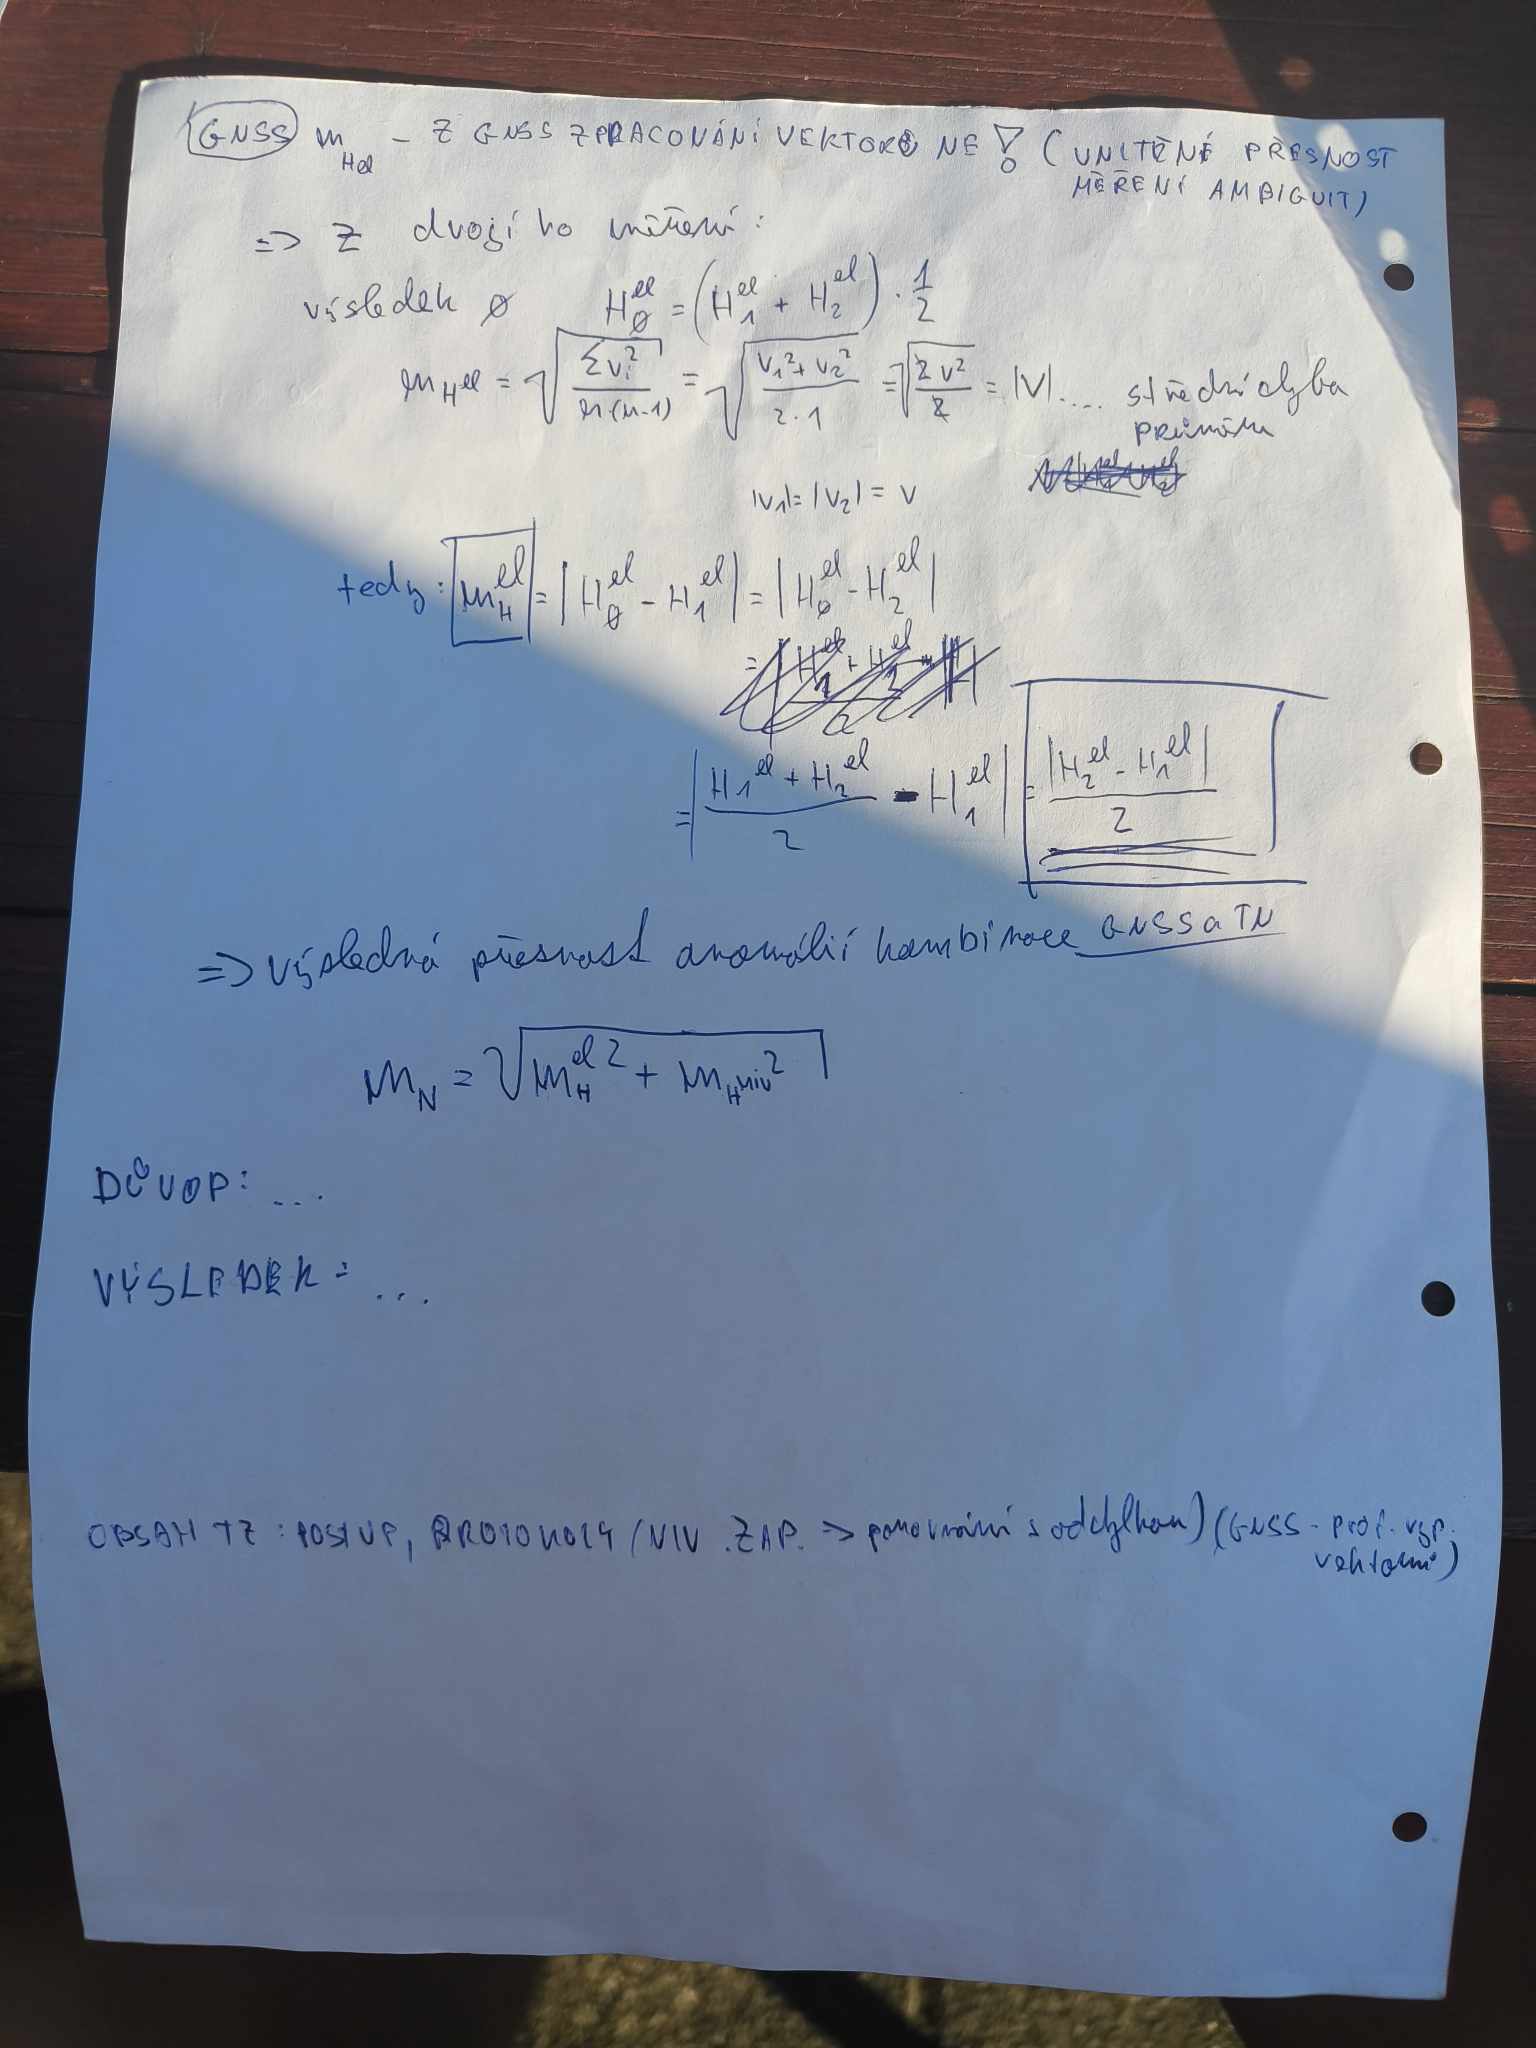 GNSS m_Hel – Z GNSS ZPRACOVÁNÍ VEKTORŮ NE! (VNITŘNÉ PŘESNOST
MĚŘENÍ AMBIGUIT)
=> Z dvojího měření:
výsledek ø H_ø^el = (H_1^el + H_2^el) · 1/2
m_H^el = √(Σv_i^2 / n·(n-1)) = √(v_1^2 + v_2^2 / 2·1) = √(2v^2 / 2) = |V| .... střední chyba
průměru
|v_1| = |v_2| = v
tedy: m_H^el = |H_ø^el - H_1^el| = |H_ø^el - H_2^el|
= |(H_1^el + H_2^el)/2 - H_1^el| = |H_2^el - H_1^el| / 2
=> výsledná přesnost anomálií kombinace GNSS a TN
m_N = √(m_H^el 2 + m_H^niv 2)
DŮVOD: ...
VÝSLEDEK: ...
OBSAH TZ: POSTUP, PROTOKOLY (NIV. ZÁP. => porovnání s odchylkou) (GNSS - prot. výp.
vektorů)